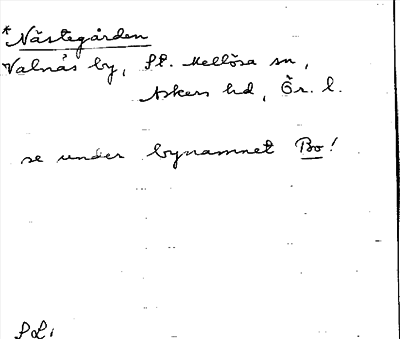 *Nästegården
Valnäs by, St. Mellösa sn,
Askers hd, Ör. l.
se under bynamnet Bo!
SL.